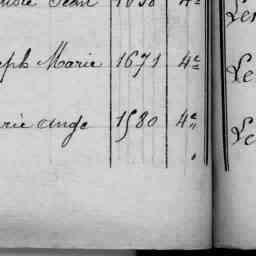 Jean 1656 4e
eph Marie 1671 4e Le
rie ange 1580 4e Le